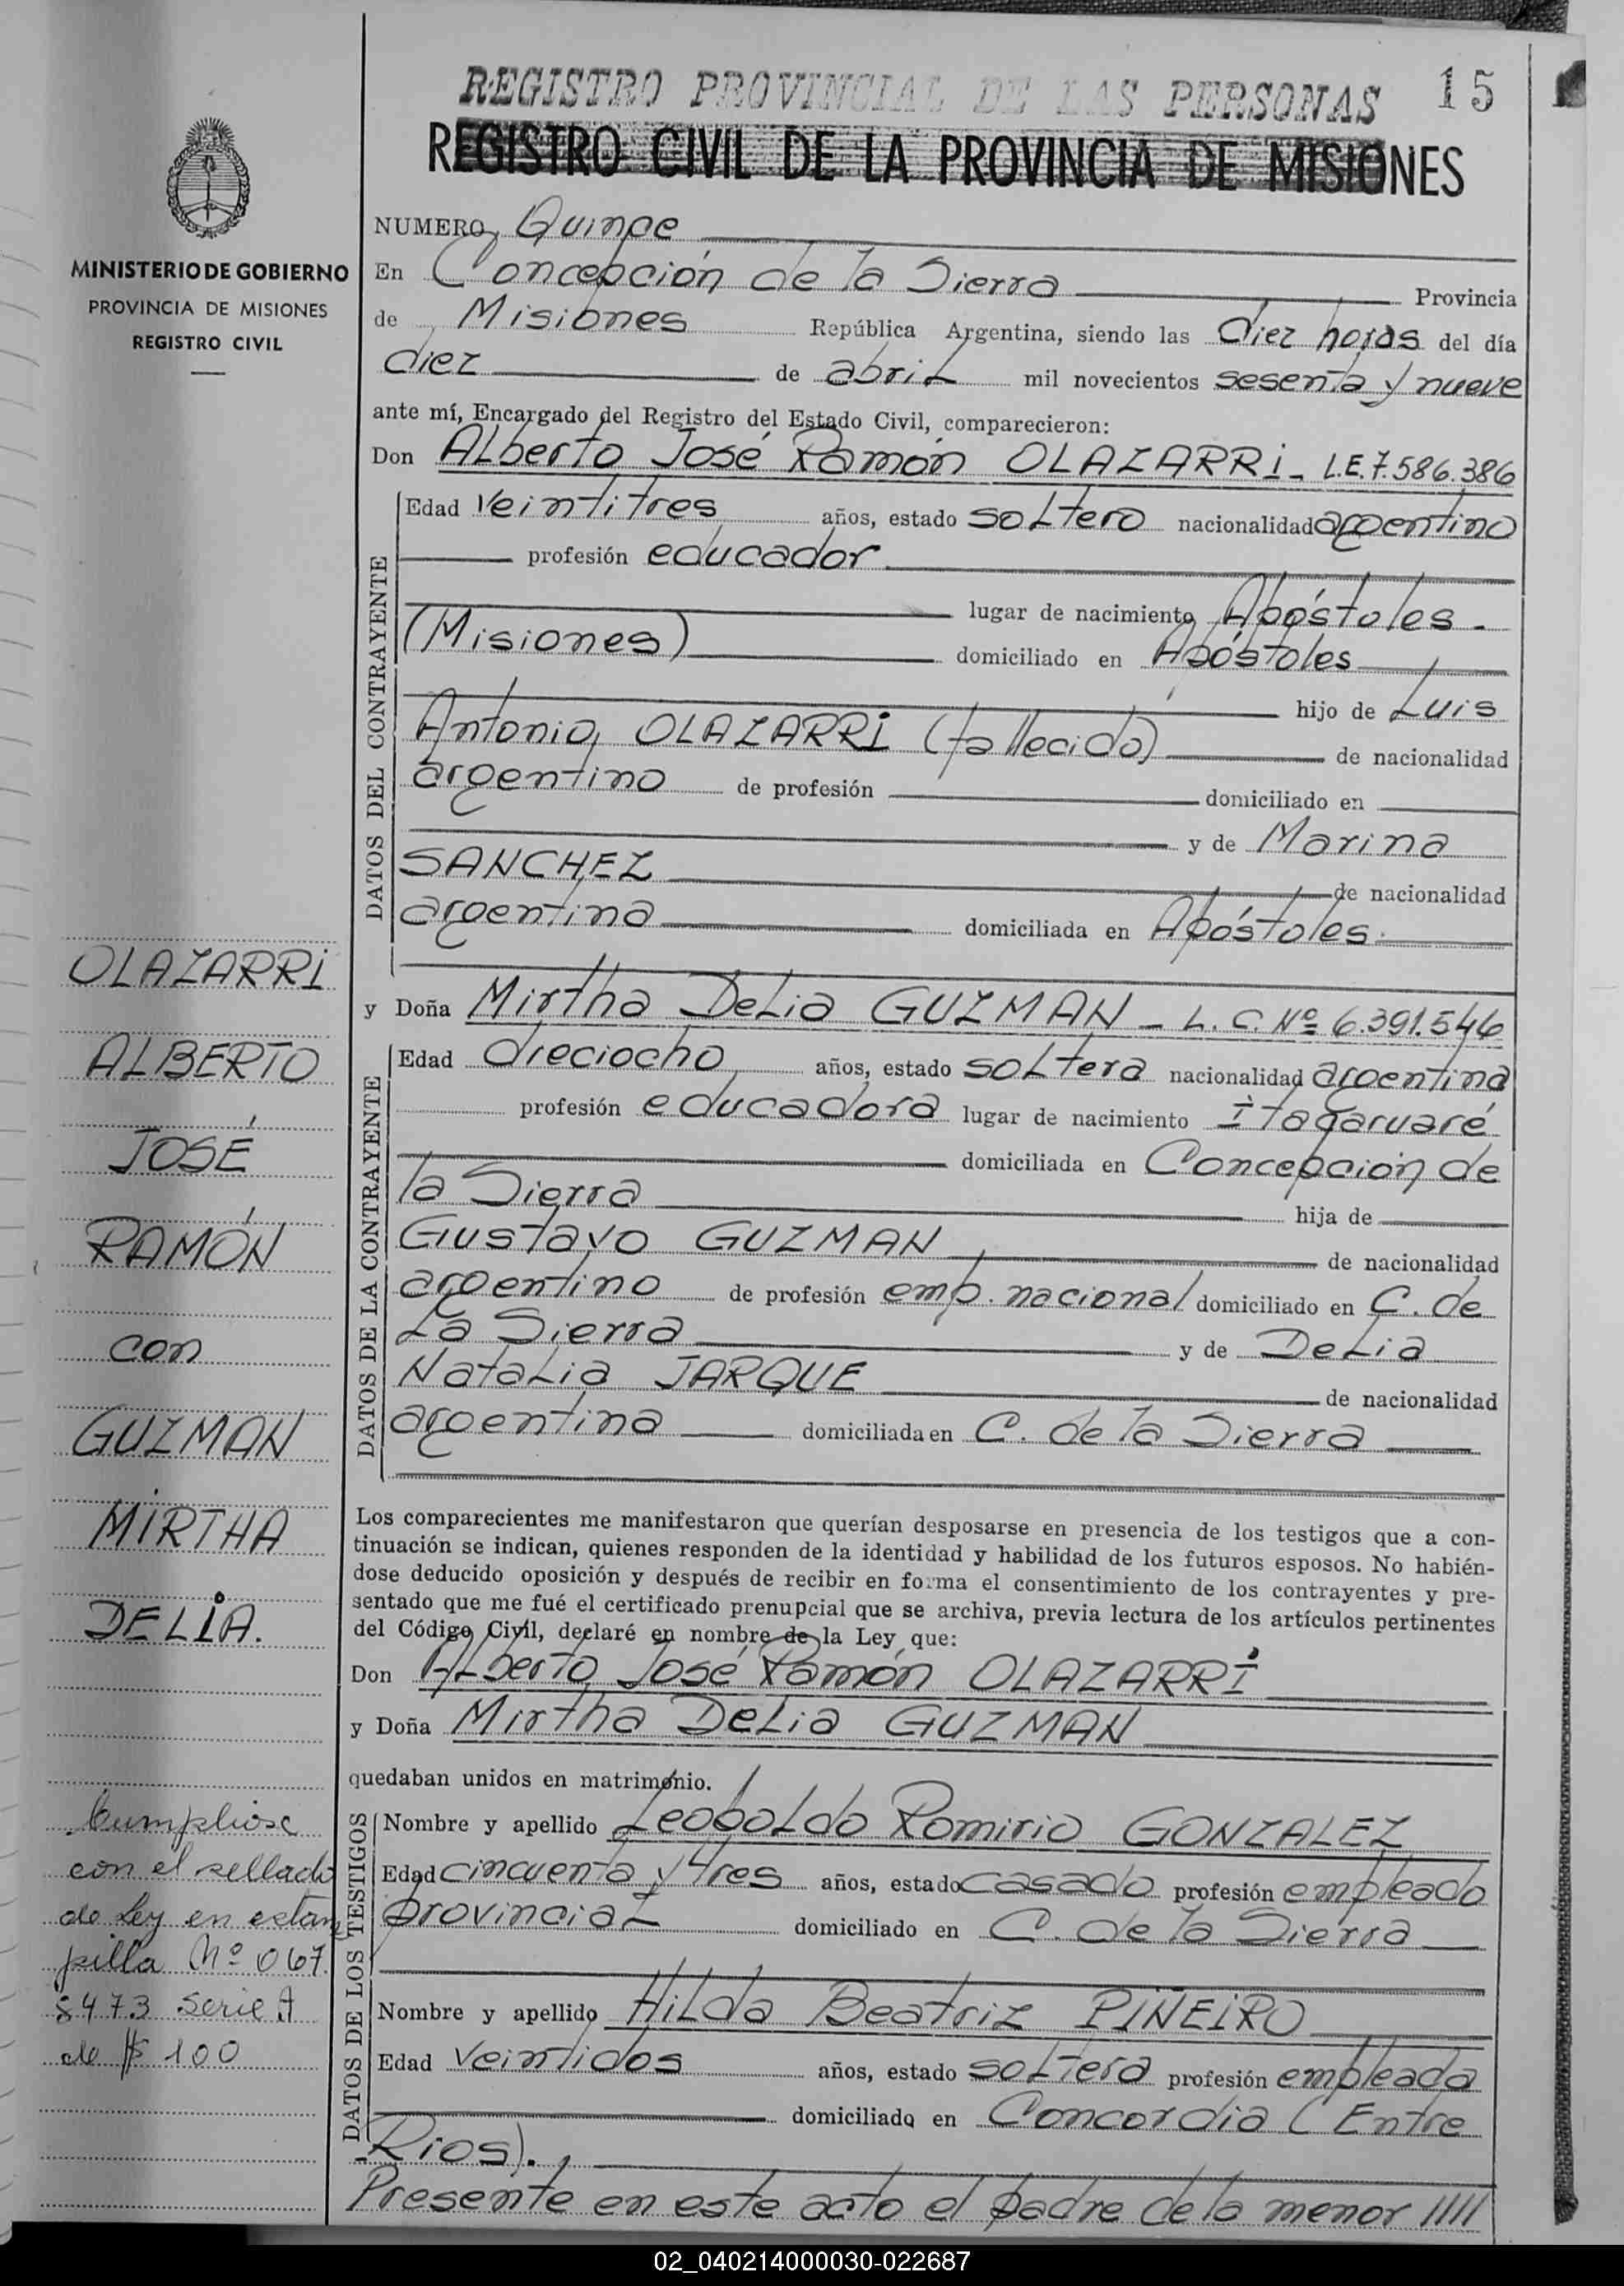 REGISTRO PROVINCIAL DE LAS PERSONAS 15
REGISTRO CIVIL DE LA PROVINCIA DE MISIONES
MINISTERIO DE GOBIERNO
PROVINCIA DE MISIONES
REGISTRO CIVIL
NUMERO Quince
En Concepción de la Sierra Provincia
de Misiones República Argentina, siendo las diez horas del día
diez de abril mil novecientos sesenta y nueve
ante mí, Encargado del Registro del Estado Civil, comparecieron:
Don Alberto José Ramón OLAZARRI - L.E. 7.586.386
DATOS DEL CONTRAYENTE
Edad veintitres años, estado soltero nacionalidad argentino
profesión educador
lugar de nacimiento Apóstoles -
(Misiones) domiciliado en Apóstoles
hijo de Luis
Antonio OLAZARRI (fallecido) de nacionalidad
argentino de profesión domiciliado en
y de Marina
SANCHEZ de nacionalidad
argentina domiciliada en Apóstoles.
y Doña Mirtha Delia GUZMAN - L. C. Nº 6.391.546
DATOS DE LA CONTRAYENTE
Edad dieciocho años, estado soltera nacionalidad argentina
profesión educadora lugar de nacimiento Itacaruaré
domiciliada en Concepción de
la Sierra hija de
Gustavo GUZMAN de nacionalidad
argentino de profesión emp. nacional domiciliado en C. de
La Sierra y de Delia
Natalia JARQUE de nacionalidad
argentina domiciliada en C. de la Sierra
Los comparecientes me manifestaron que querían desposarse en presencia de los testigos que a con-
tinuación se indican, quienes responden de la identidad y habilidad de los futuros esposos. No habién-
dose deducido oposición y después de recibir en forma el consentimiento de los contrayentes y pre-
sentado que me fué el certificado prenupcial que se archiva, previa lectura de los artículos pertinentes
del Código Civil, declaré en nombre de la Ley que:
Don Alberto José Ramón OLAZARRI
y Doña Mirtha Delia GUZMAN
quedaban unidos en matrimonio.
DATOS DE LOS TESTIGOS
Nombre y apellido Leopoldo Romirio GONZALEZ
Edad cincuenta y tres años, estado casado profesión empleado
provincial domiciliado en C. de la Sierra
Nombre y apellido Hilda Beatriz PIÑEIRO
Edad veintidos años, estado soltera profesión empleada
domiciliado en Concordia (Entre
Rios).
Presente en este acto el padre de la menor ////
OLAZARRI
ALBERTO
JOSÉ
RAMÓN
con
GUZMAN
MIRTHA
DELIA.
Cumpliose
con el sellado
de Ley en estam
pilla Nº 067.
8473 serie A
de $ 100
02_040214000030-022687